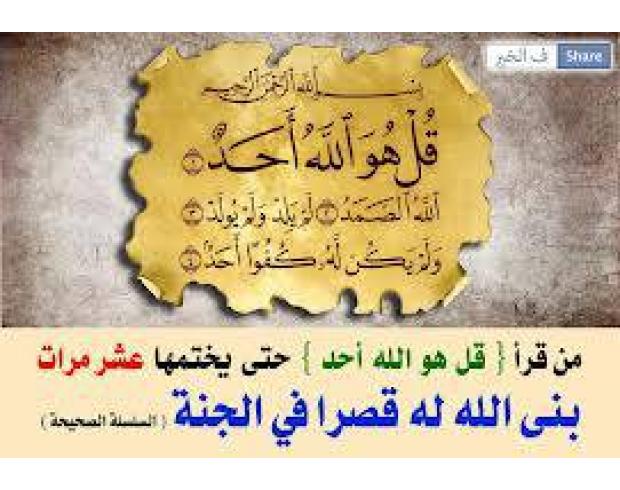 Share ف الخير
بِسْمِ اللَّهِ الرَّحْمَٰنِ الرَّحِيمِ
قُلْ هُوَ ٱللَّهُ أَحَدٌ ١
ٱللَّهُ ٱلصَّمَدُ ٢ لَمْ يَلِدْ وَلَمْ يُولَدْ ٣
وَلَمْ يَكُن لَّهُۥ كُفُوًا أَحَدٌۢ ٤
من قرأ { قل هو الله أحد } حتى يختمها عشر مرات
بنى الله له قصرا في الجنة ( السلسلة الصحيحة )